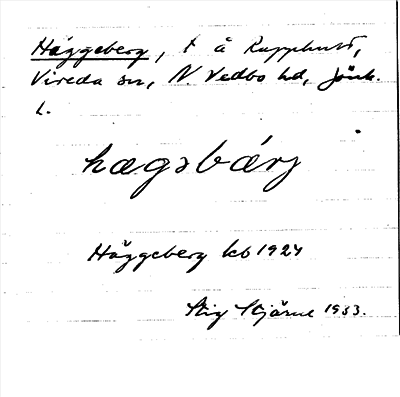 Häggeberg, t å Rapphult,
Vireda sn, N Vedbo hd, Jönk.
L.
hægsbærj
Häggeberg kb 1924
Stig Stjärne 1933.